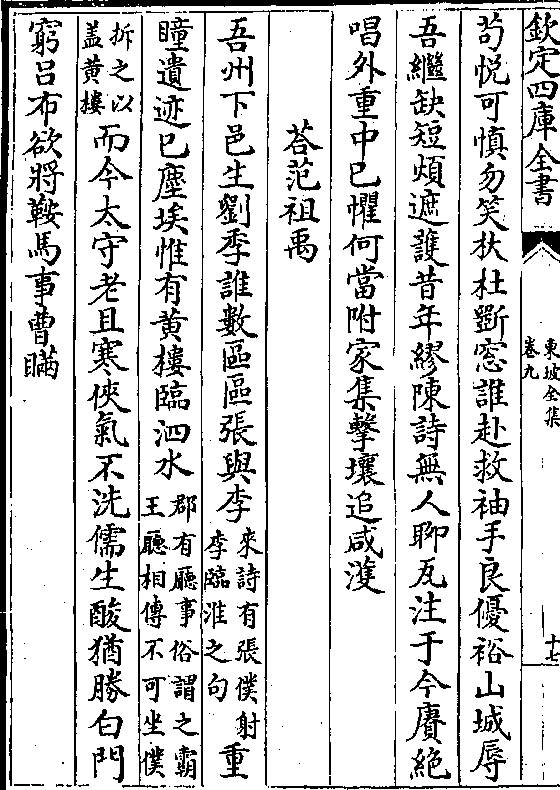 欽定四庫全書
東坡全集
卷九
十七
苟悦可慎勿笑杕杜斵窓誰赴救袖手良優裕山城辱
吾繼缺短煩遮䕶昔年繆陳詩無人聊瓦注于今賡絶
唱外重中已懼何當附家集擊壤追咸濩
荅范祖禹
吾州下邑生劉季誰數區區張與李來詩有張僕射李臨淮之句重
瞳遺迹已塵埃惟有黄樓臨泗水郡有廳事俗謂之霸王廳相傳不可坐僕
拆之以盖黄樓而今太守老且寒俠氣不洗儒生酸猶勝白門
窮吕布欲將鞍馬事曹瞞